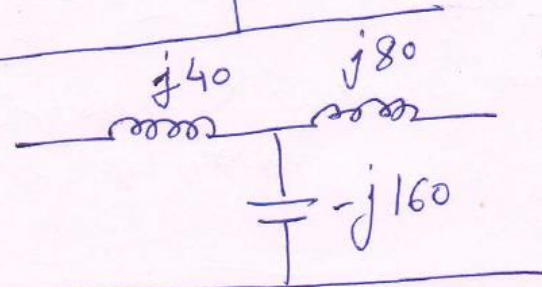 j40 j80
-j160